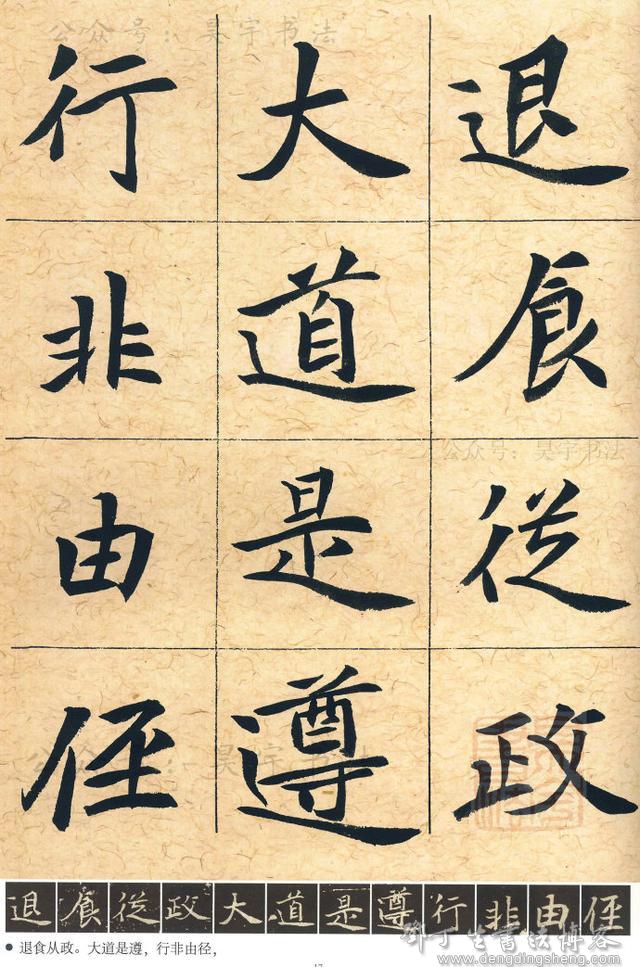 公众号：吴宇书法
退食從政
大道是遵
行非由径
公众号：吴宇书法
公众号：吴宇书法
退食從政大道是遵行非由径
● 退食从政。大道是遵，行非由径，
邓丁生书法博客
www.dengdingsheng.com